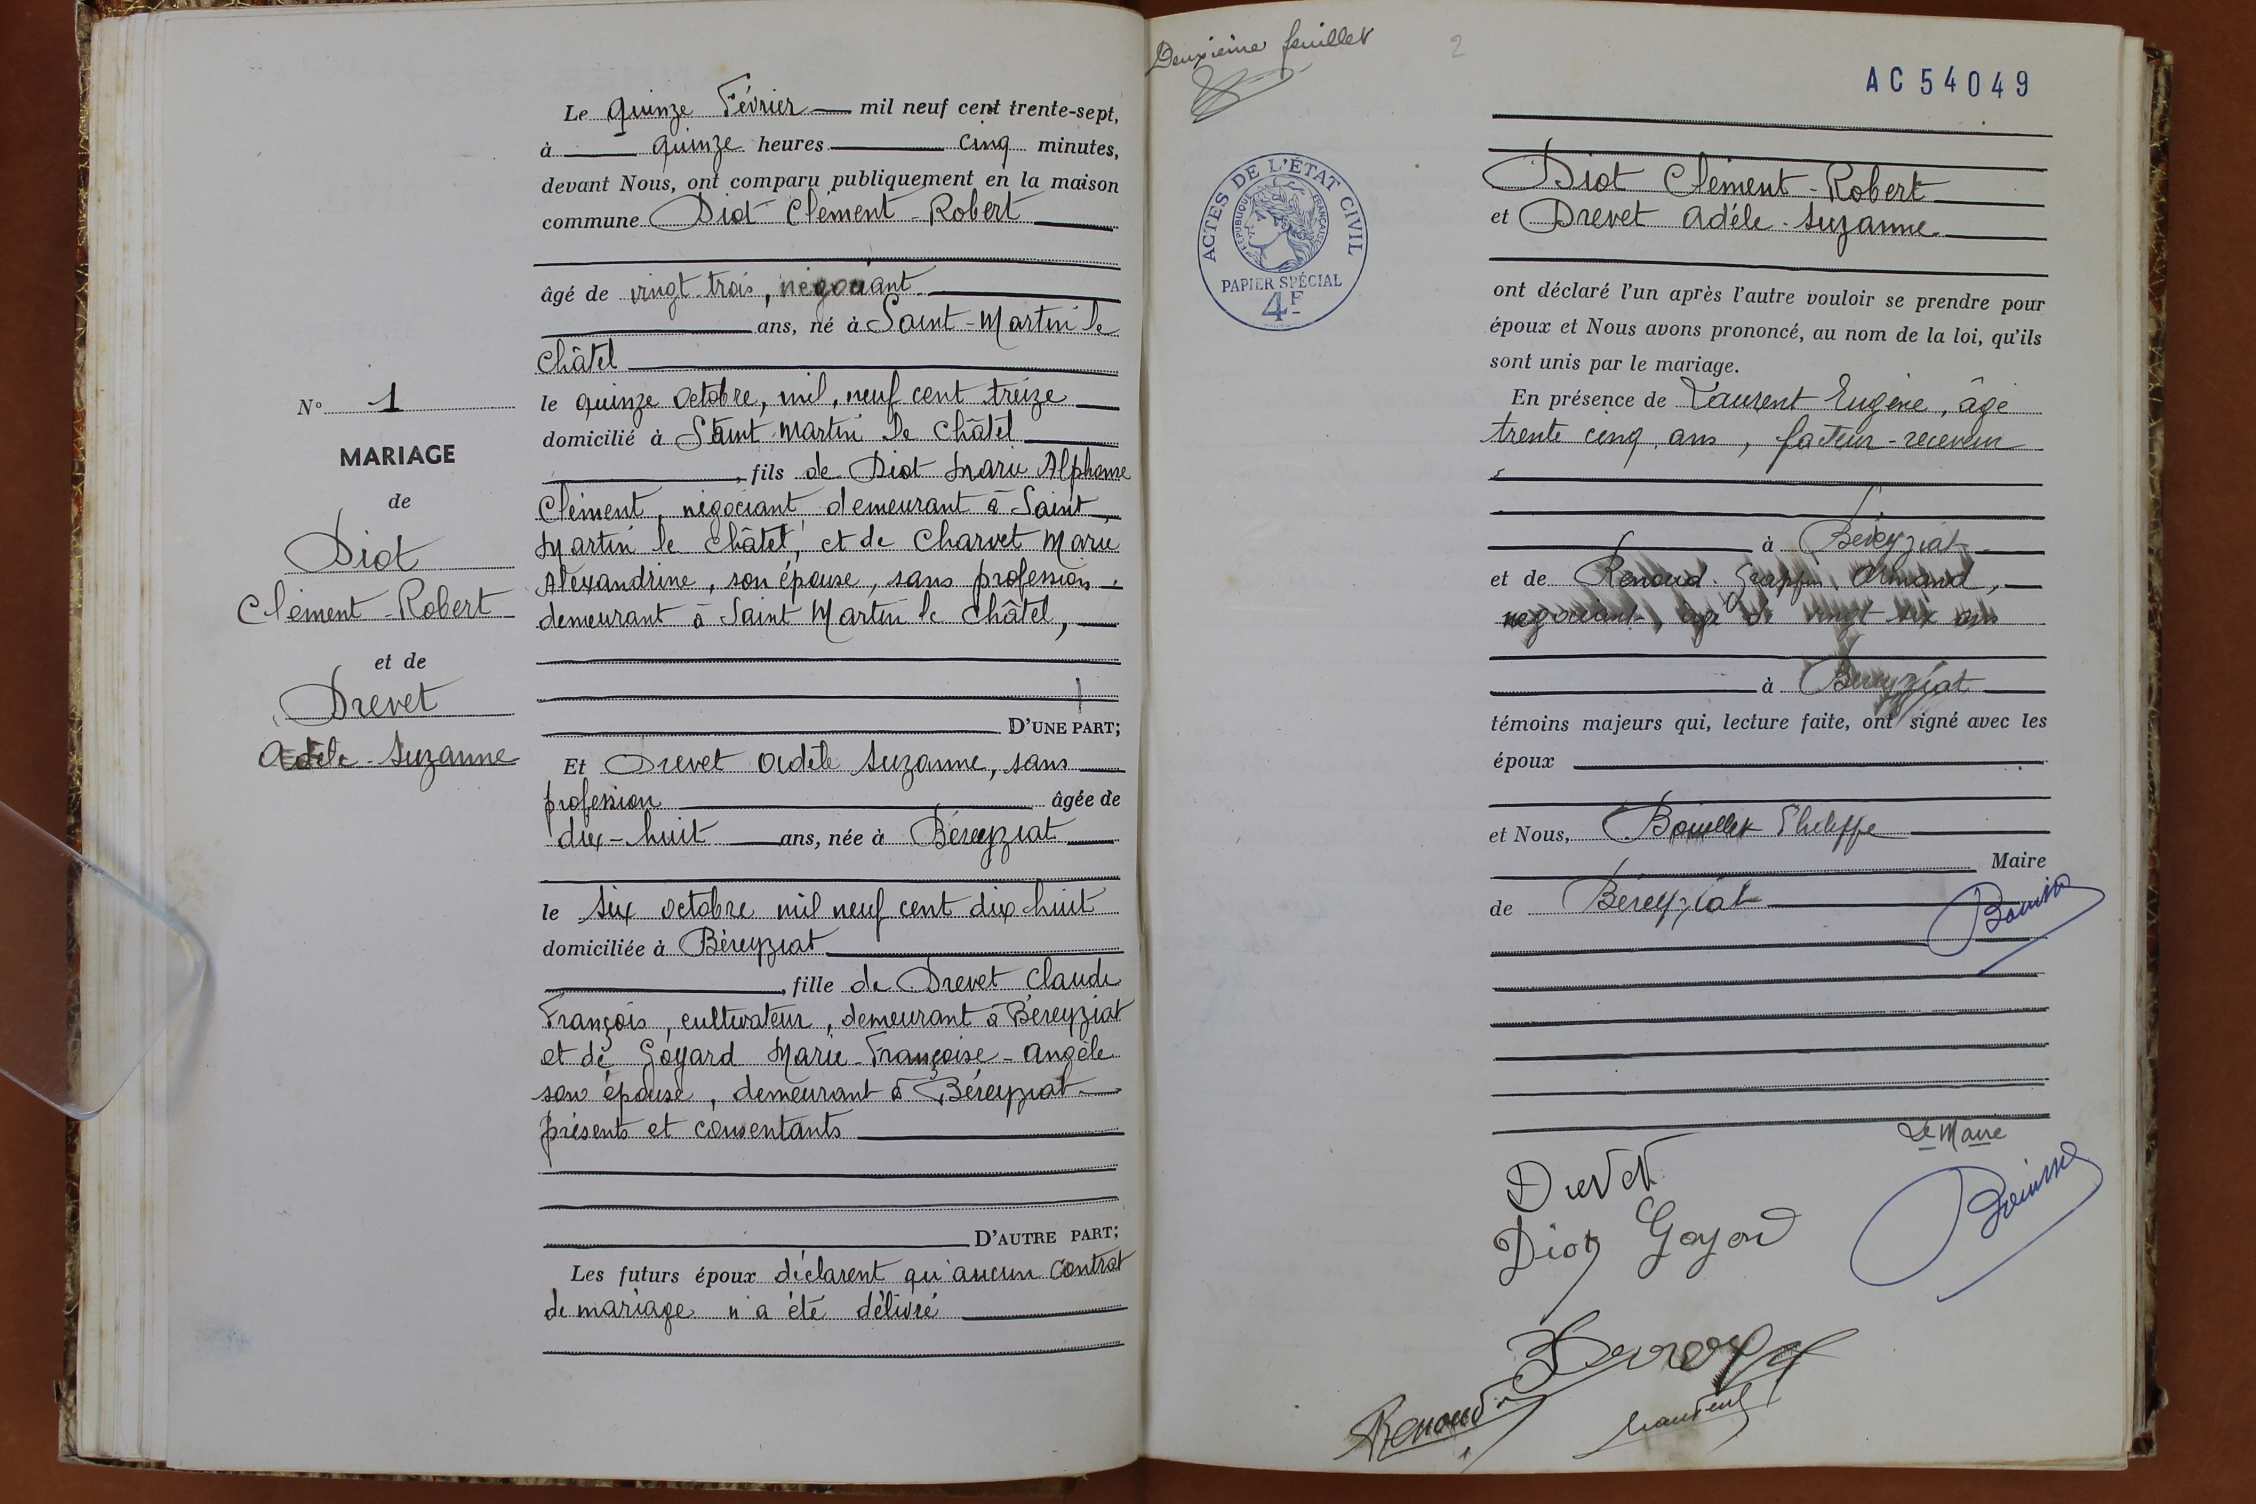 Le quinze Février mil neuf cent trente-sept,
à quinze heures cinq minutes,
devant Nous, ont comparu publiquement en la maison
commune Diot Clément-Robert
âgé de vingt-trois, négociant
ans, né à Saint-Martin le
Châtel
le quinze octobre, mil, neuf cent treize
domicilié à Saint Martin le Châtel
, fils de Diot Marie Alphonse
Clément, négociant demeurant à Saint
Martin le Châtel, et de Charvet Marie
Alexandrine, son épouse, sans profession,
demeurant à Saint Martin le Châtel,
D'UNE PART;
Et Drevet Adèle Suzanne, sans
profession âgée de
dix-huit ans, née à Béreyziat
le six octobre mil neuf cent dix huit
domiciliée à Béreyziat
, fille de Drevet Claude
François, cultivateur, demeurant à Béreyziat
et de Goyard Marie-Françoise-Angèle
son épouse, demeurant à Béreyziat
présents et consentants
D'AUTRE PART;
Les futurs époux déclarent qu'aucun contrat
de mariage n'a été délivré
N° 1
MARIAGE
de
Diot
Clément-Robert
et de
Drevet
Adèle-Suzanne
Deuxième feuillet
2
AC54049
ACTES DE L'ÉTAT CIVIL
RÉPUBLIQUE FRANÇAISE
PAPIER SPÉCIAL
4F
Diot Clément-Robert
et Drevet Adèle-Suzanne
ont déclaré l'un après l'autre vouloir se prendre pour
époux et Nous avons prononcé, au nom de la loi, qu'ils
sont unis par le mariage.
En présence de Laurent Eugène, âgé
trente cinq ans, facteur-receveur
à Béreyziat
et de Renoud-Grappin Armand,
négociant, âgé de vingt six ans
à Béreyziat
témoins majeurs qui, lecture faite, ont signé avec les
époux
et Nous, Philippe
Maire
de Béreyziat
Le Maire
Drevet
Diot Goyard
Renoud
Laurent